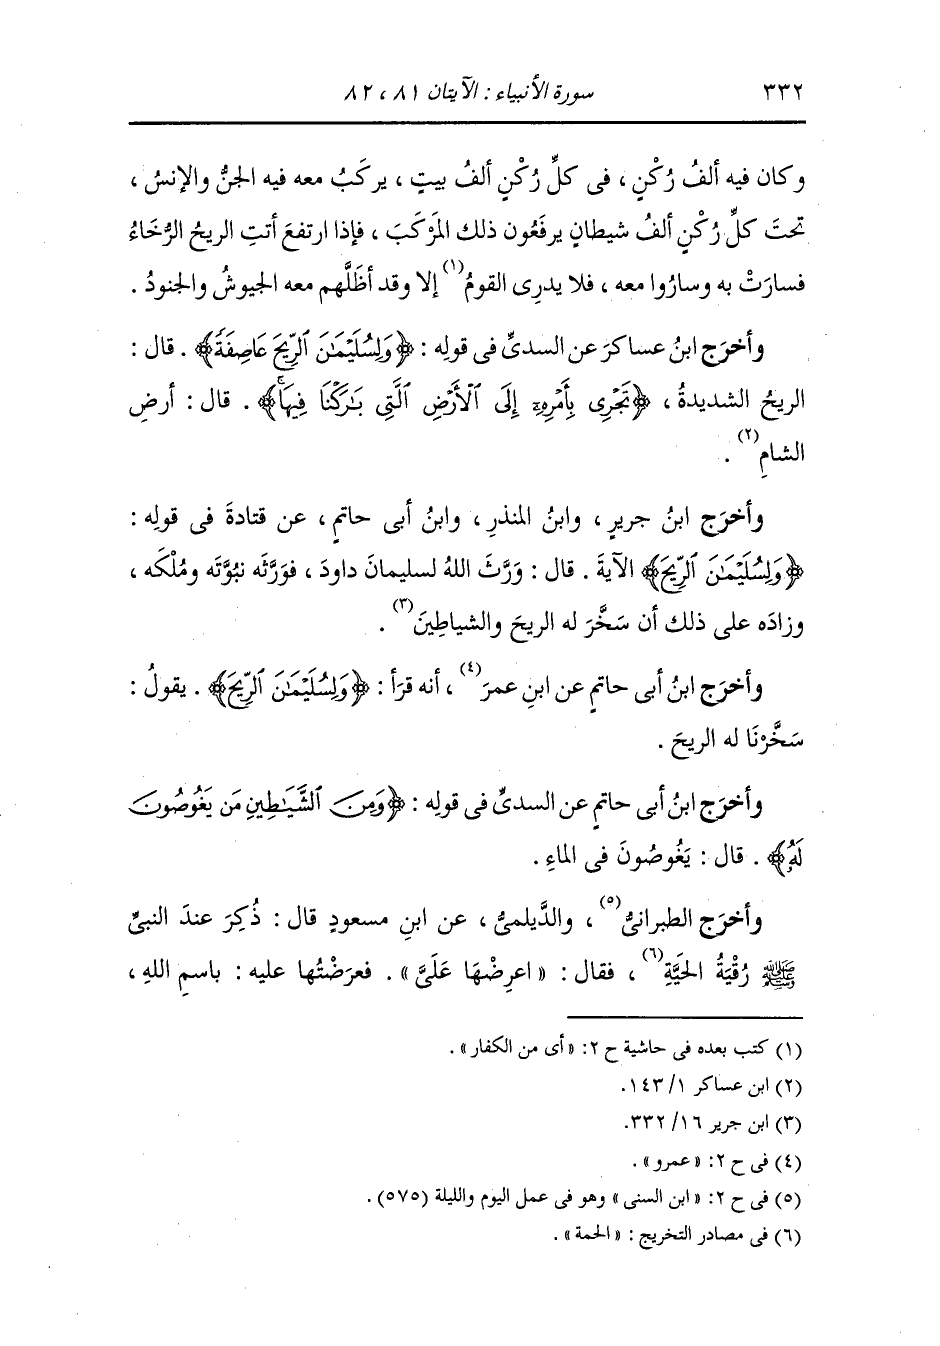 ٣٣٢ سورة الأنبياء : الآيتان ٨١ ، ٨٢
وكان فيه ألفُ رُكْنٍ ، فى كلِّ رُكْنٍ ألفُ بيتٍ ، يركَبُ معه فيه الجنُّ والإنسُ ،
تحتَ كلِّ رُكْنٍ ألفُ شيطانٍ يرفَعُون ذلك المَرْكَبَ ، فإذا ارتفعَ أتتِ الريحُ الرُّخَاءُ
فسارَتْ به وسارُوا معه ، فلا يدرِى القومُ(١) إلا وقد أظَلَّهم معه الجيوشُ والجنودُ .
وأخرَج ابنُ عساكرَ عن السدىِّ فى قولِه : ﴿وَلِسُلَيْمَـٰنَ ٱلرِّيحَ عَاصِفَةً﴾ . قال :
الريحُ الشديدةُ ، ﴿تَجْرِى بِأَمْرِهِۦٓ إِلَى ٱلْأَرْضِ ٱلَّتِى بَـٰرَكْنَا فِيهَاۚ﴾ . قال : أرضِ
الشامِ(٢) .
وأخرَج ابنُ جريرٍ ، وابنُ المنذرِ ، وابنُ أبى حاتمٍ ، عن قتادةَ فى قولِه :
﴿وَلِسُلَيْمَـٰنَ ٱلرِّيحَ﴾ الآيةَ . قال : وَرَّثَ اللهُ لسليمانَ داودَ ، فوَرَّثَه نبُوَّتَه ومُلْكَه ،
وزادَه على ذلك أن سَخَّرَ له الريحَ والشياطِينَ(٣) .
وأخرَج ابنُ أبى حاتمٍ عن ابنِ عمرَ(٤) ، أنه قرَأ : ﴿وَلِسُلَيْمَـٰنَ ٱلرِّيحَ﴾ . يقولُ :
سَخَّرْنَا له الريحَ .
وأخرَج ابنُ أبى حاتمٍ عن السدىِّ فى قولِه : ﴿وَمِنَ ٱلشَّيَـٰطِينِ مَن يَغُوصُونَ
لَهُۥ﴾ . قال : يَغُوصُونَ فى الماءِ .
وأخرَج الطبرانىُّ(٥) ، والدَّيلمىُّ ، عن ابنِ مسعودٍ قال : ذُكِرَ عندَ النبىِّ
ﷺ رُقْيَةُ الحَيَّةِ(٦) ، فقال : « اعرِضْهَا عَلَىَّ » . فعرَضْتُها عليه : باسمِ اللهِ ،
(١) كتب بعده فى حاشية ح ٢: « أى من الكفار » .
(٢) ابن عساكر ١/ ١٤٣.
(٣) ابن جرير ١٦/ ٣٣٢.
(٤) فى ح ٢: « عمرو » .
(٥) فى ح ٢: « ابن السنى » وهو فى عمل اليوم والليلة (٥٧٥) .
(٦) فى مصادر التخريج : « الحمة » .